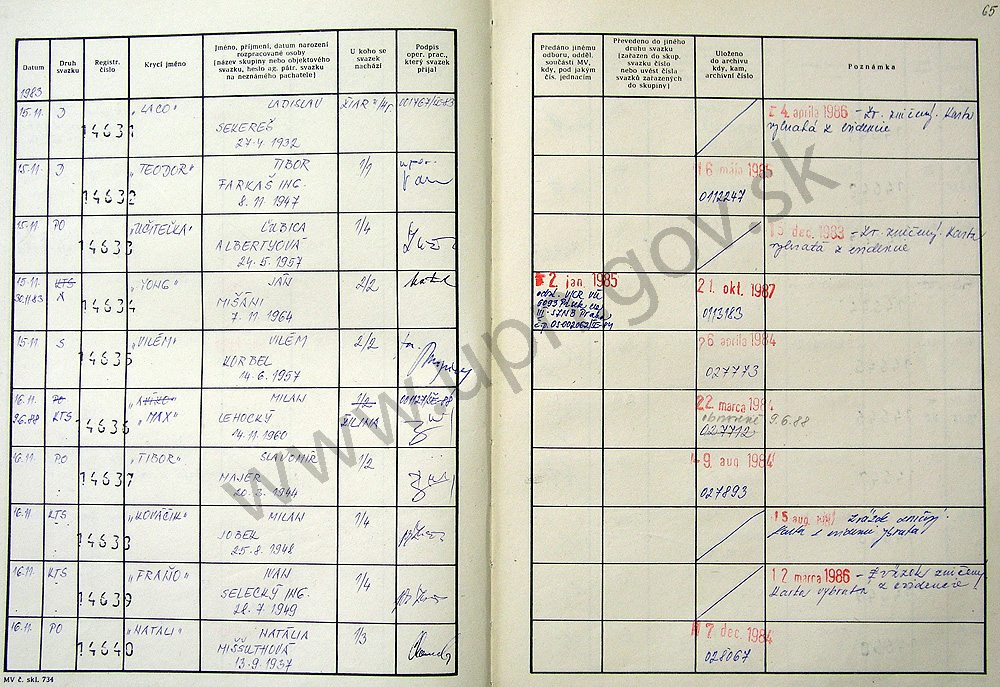 65
Datum
Druh svazku
Registr. číslo
Krycí jméno
Jméno, příjmení, datum narození
rozpracované osoby
(název skupiny nebo objektového
svazku, heslo ag. pátr. svazku
na neznámého pachatele)
U koho se
svazek
nachází
Podpis
oper. prac.,
který svazek
přijal
Předáno jinému
odboru, odděl.
součásti MV,
kdy, pod jakým
čís. jednacím
Převedeno do jiného
druhu svazku
(zařazen do skup.
svazku číslo
nebo uvést čísla
svazků zařazených
do skupiny)
Uloženo
do archivu
kdy, kam,
archivní číslo
Poznámka
1983
15.11. D 14631 „LACO" LADISLAV
SEKEREŠ
27.4.1932
4. apríla 1986 - Zv. zničený. Karta
vybratá z evidencie
15.11. D 14632 „TEODOR" TIBOR 1/1
FARKAŠ ING.
8.11.1947
16 mája 1985
0112247
15.11. PO 14633 „UČITEĽKA" ĽUBICA 1/4
ALBERTYOVÁ
24.5.1957
dec. 1983 - Zv. zničený. Karta
vybratá z evidencie
15.11. KTS 14634 „YONG" JÁN 2/2
MIŠÁNI
7.11.1964
2. jan. 1985
21. okt. 1987
0113183
15.11 S 14635 „VILÉM" VILÉM 2/2
KORBEL
14.6.1957
26 apríla 1984
027773
16.11. PO 14636 MILAN 1/2
26.88 KTS „MAX" LEHOCKÝ ŽILINA
14.11.1960
22 marca 1984
obnovené 9.6.88
027712
16.11. PO 14637 „TIBOR" SLAVOMÍR 1/2
MAJER
20.3.1944
9. aug. 1984
027893
16.11. KTS 14638 „KOVÁČIK" MILAN 1/4
JOBEK
25.8.1948
15 aug.
16.11. KTS 14639 „FRAŇO" IVAN 1/4
SELECKÝ ING.
28.7.1949
12. marca 1986 - Zväzok zničený
Karta vybratá z evidencie!
16.11. PO 14640 „NATALI" NATÁLIA 1/3
MIŠŠUTHOVÁ
13.9.1937
7 dec. 1984
028067
MV č. skl. 734
www.upn.gov.sk